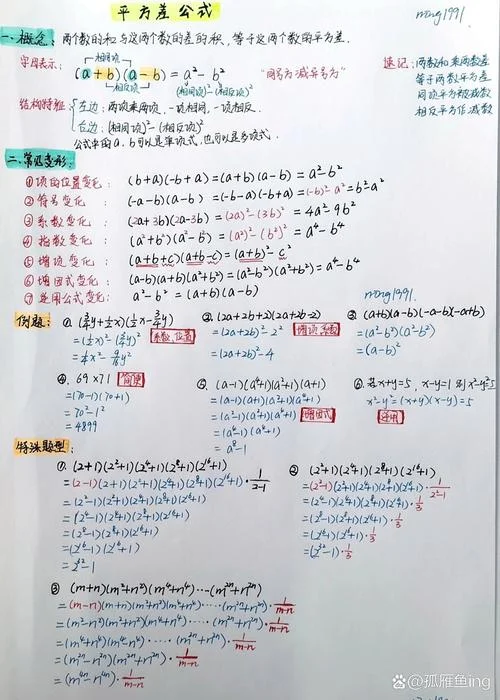 平方差公式
ming1991
一.概念: 两个数的和与这两个数的差的积,等于这两个数的平方差.
字母表示: 相同项
(a+b)(a-b)=a²-b² "同号为减异号为"
相反项 (相同项)²(相反项)²
速记: 两数和乘两数差
等于两数平方差
同项平方被减数
相反平方作减数
结构特征 左边: 两项乘两项,一项相同,一项相反.
右边: (相同项)²-(相反项)²
公式中的a、b可以是单项式,也可以是多项式.
二.常见变形:
①项的位置变化: (b+a)(-b+a)=(a+b)(a-b)=a²-b²
②符号变化: (-a-b)(a-b)=(-b-a)(-b+a)=(-b)²-a²=b²-a²
③系数变化: (2a+3b)(2a-3b)=(2a)²-(3b)²=4a²-9b²
④指数变化: (a²+b²)(a²-b²)=(a²)²-(b²)²=a⁴-b⁴
⑤增项变化: (a+b+c)(a+b-c)=(a+b)²-c²
⑥增因式变化: (a-b)(a+b)(a²+b²)=(a²-b²)(a²+b²)=a⁴-b⁴
⑦逆用公式变化: a²-b²=(a+b)(a-b)
ming1991.
例题:
①(3/4y+1/2x)(1/2x-3/4y)
=(1/2x)²-(3/4y)²
=1/4x²-9/16y²
系数,位置
②(2a+2b+2)(2a+2b-2)
=(2a+2b)²-2²
=(2a+2b)²-4
增项,系数
③(a+b)(a-b)(-a-b)(-a+b)
=(a²-b²)(a²-b²)
=(a-b)²
④69×71 简便
=(70-1)(70+1)
=70²-1²
=4899
⑤(a-1)(a⁴+1)(a²+1)(a+1)
=(a-1)(a+1)(a²+1)(a⁴+1)
=(a²-1)(a²+1)(a⁴+1)
=(a⁴-1)(a⁴+1)
=a⁸-1
增因式
⑥若x+y=5,x-y=1 则x²-y²=5
x²-y²=(x+y)(x-y)=5
逆用
特殊题型:
①(2+1)(2²+1)(2⁴+1)(2⁸+1)(2¹⁶+1)
=(2-1)(2+1)(2²+1)(2⁴+1)(2⁸+1)(2¹⁶+1)·1/2-1
=(2²-1)(2²+1)(2⁴+1)(2⁸+1)(2¹⁶+1)
=(2⁴-1)(2⁴+1)(2⁸+1)(2¹⁶+1)
=(2⁸-1)(2⁸+1)(2¹⁶+1)
=(2¹⁶-1)(2¹⁶+1)
=2³²-1
②(2²+1)(2⁴+1)(2⁸+1)(2¹⁶+1)
=(2²-1)(2²+1)(2⁴+1)(2⁸+1)(2¹⁶+1)·1/2²-1
=(2⁴-1)(2⁴+1)(2⁸+1)(2¹⁶+1)·1/3
=(2⁸-1)(2⁸+1)(2¹⁶+1)·1/3
=(2¹⁶-1)(2¹⁶+1)·1/3
=(2³²-1)·1/3
③(m+n)(m²+n²)(m⁴+n⁴)···(m²ⁿ+n²ⁿ)
=(m-n)(m+n)(m²+n²)(m⁴+n⁴)·····(m²ⁿ+n²ⁿ)·1/m-n
=(m²-n²)(m²+n²)(m⁴+n⁴)·····(m²ⁿ+n²ⁿ)·1/m-n
=(m⁴+n⁴)(m⁴-n⁴)·····(m²ⁿ+n²ⁿ)·1/m-n
=(m²ⁿ-n²ⁿ)(m²ⁿ+n²ⁿ)·1/m-n
=(m⁴ⁿ-n⁴ⁿ)·1/m-n
@孤雁鱼ing